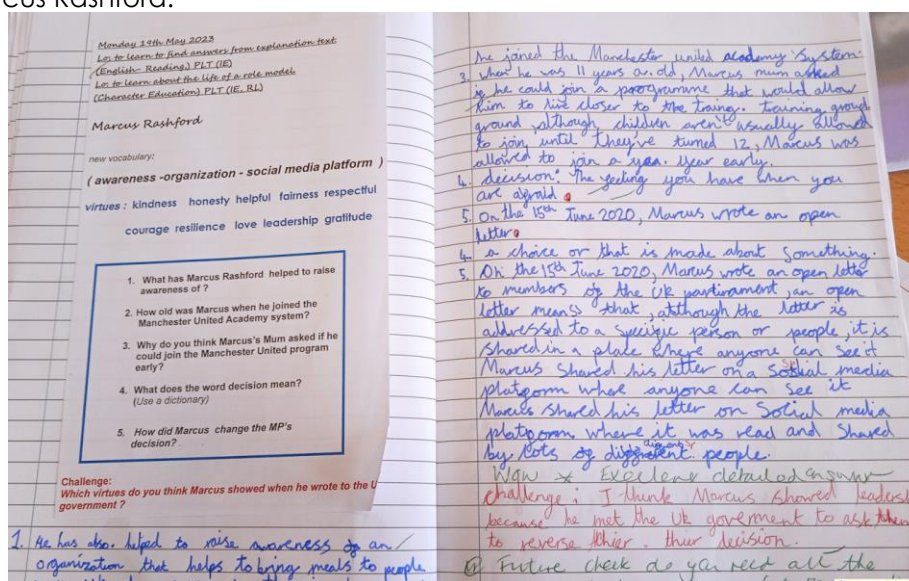 cus Rashford.
Monday 19th May 2023
Lo: to learn to find answers from explanation text.
(English- Reading) PLT (IE)
Lo: to learn about the life of a role model.
(Character Education) PLT (IE, RL)
Marcus Rashford
new vocabulary:
( awareness -organization - social media platform )
virtues : kindness honesty helpful fairness respectful
courage resilience love leadership gratitude
1. What has Marcus Rashford helped to raise
awareness of ?
2. How old was Marcus when he joined the
Manchester United Academy system?
3. Why do you think Marcus's Mum asked if he
could join the Manchester United program
early?
4. What does the word decision mean?
(Use a dictionary)
5. How did Marcus change the MP's
decision? .
Challenge:
Which virtues do you think Marcus showed when he wrote to the U
government ?
1. He has also. helped to raise awareness of an
organization that helps to bring meals to people
he joined the Manchester united academy system.
3. when he was 11 years old, Marcus mum asked
if he could join a programme that would allow
him to live closer to the training
ground, although children aren't usually allowed
to join until they've turned 12, Marcus was
allowed to join a year early.
4. decision: The feeling you have when you
are afraid
5. On the 15th June 2020, Marcus wrote an open
letter
4. a choice or that is made about something.
5. On the 15th June 2020, Marcus wrote an open letter
to members of the UK partirament, an open
letter means that, although the letter is
addressed to a specific person or people, it is
shared in a place where anyone can see it
Marcus shared his letter on a social media
platform whoe anyone can see it
Marcus shared his letter on Social media
platform where it was read and shared
by lots of different people.
Wow Excellent detailed answer
challenge: I think Marcus showed leaders
because he met the Uk goverment to ask them
to reverse thier decision.
Future check do you need all the